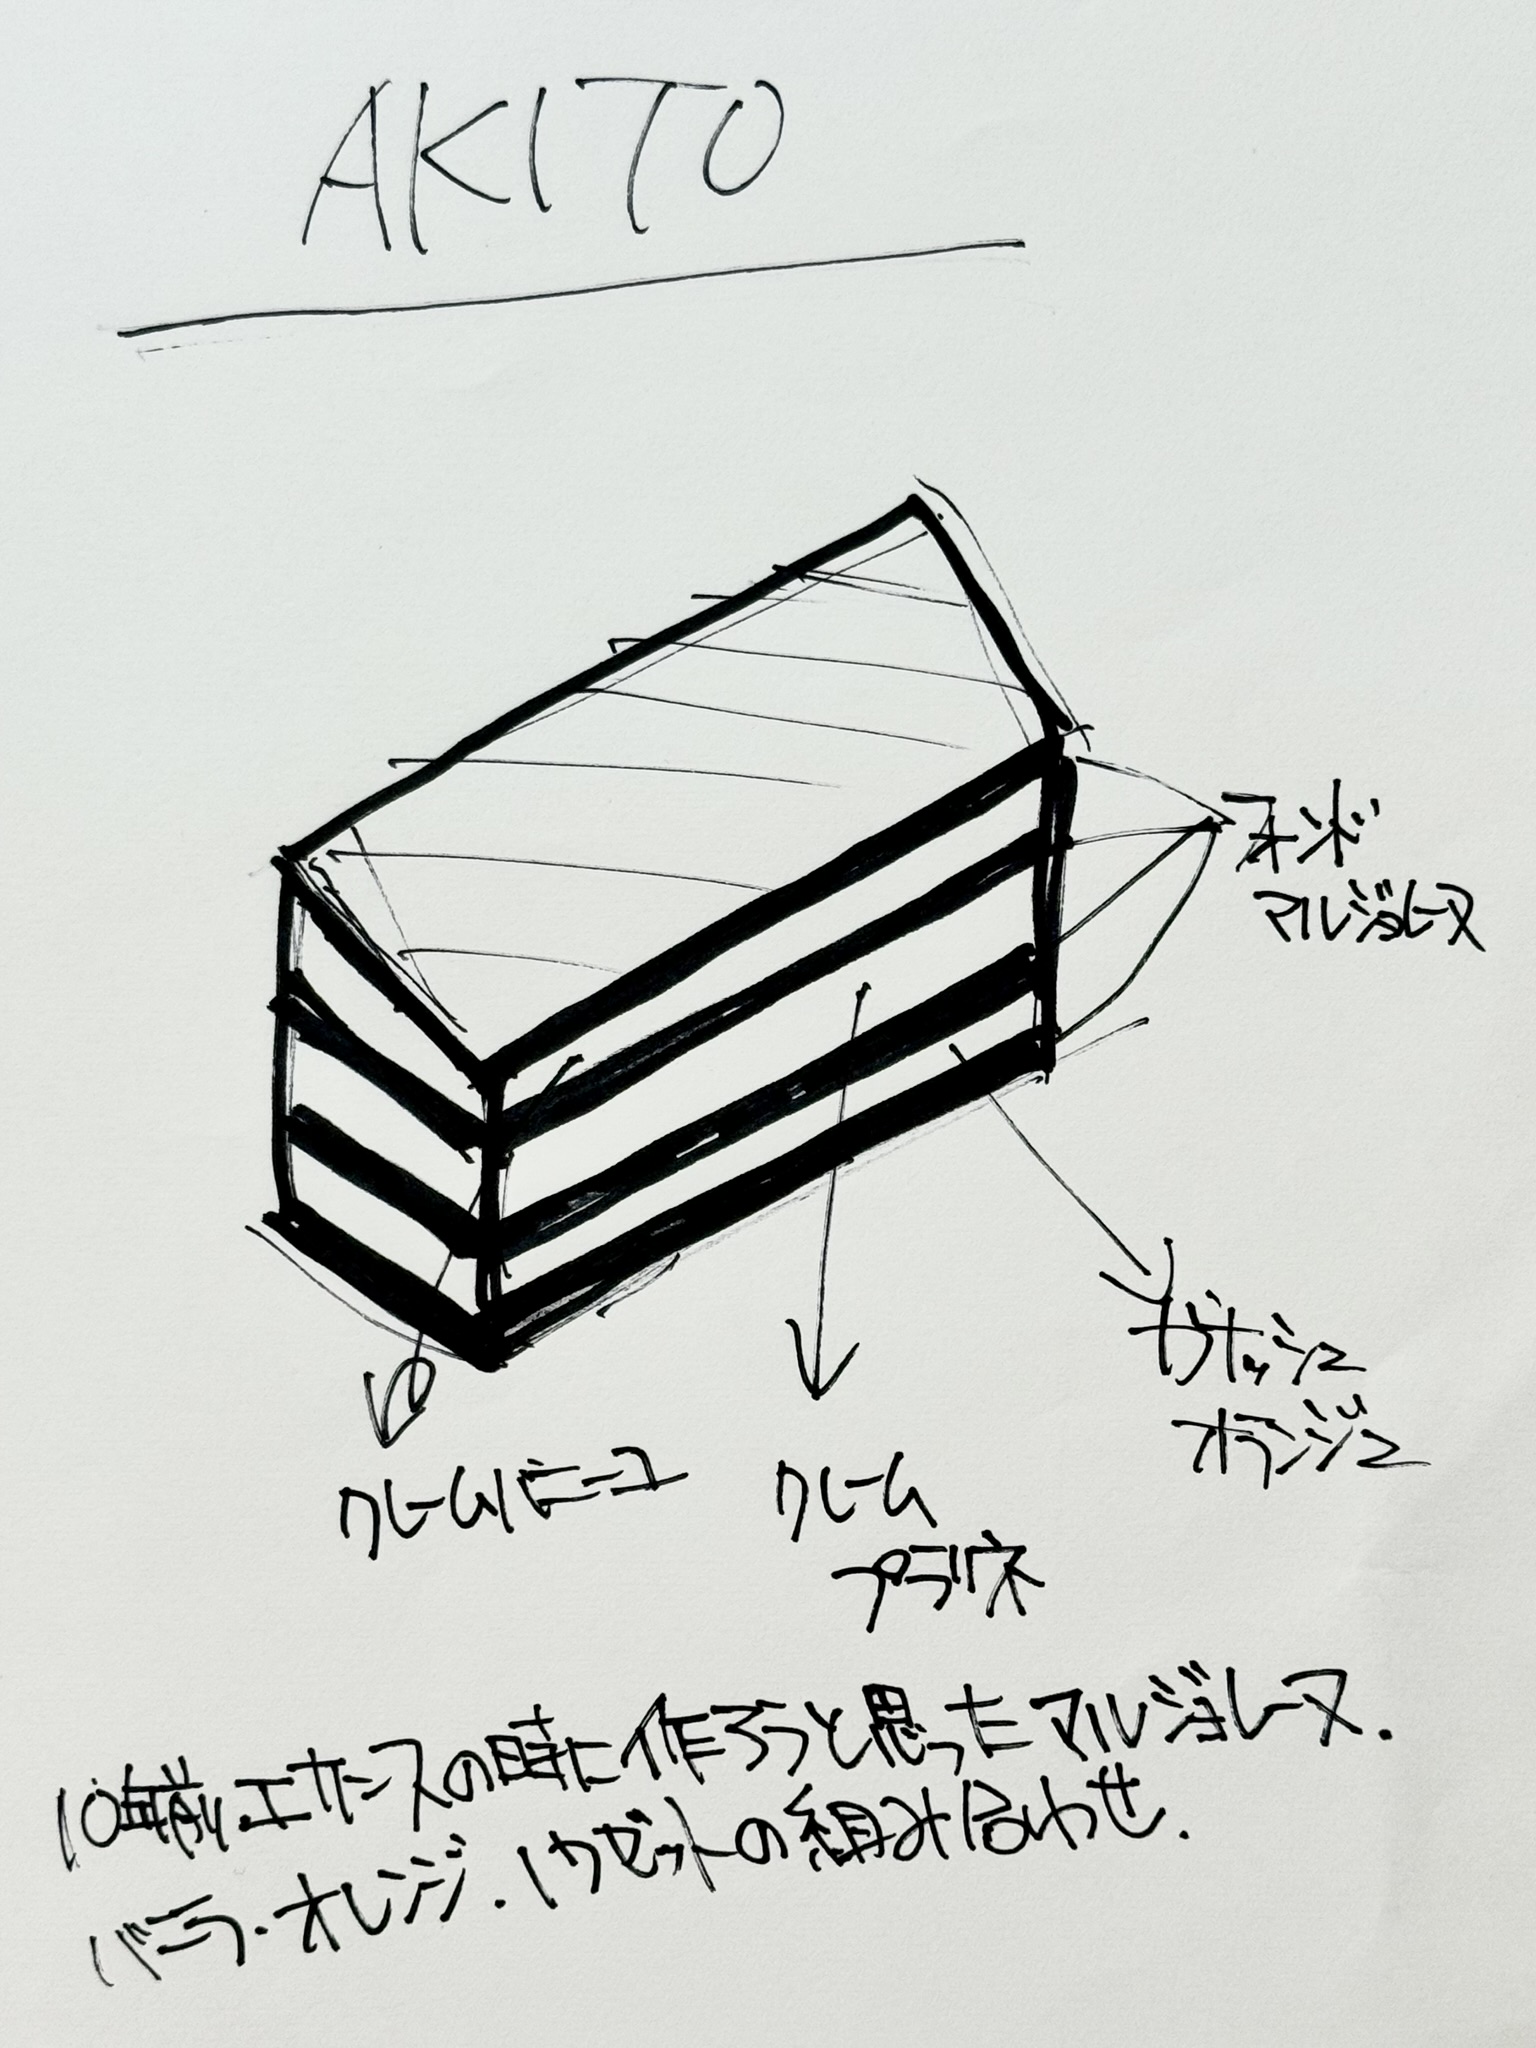 AKITO
フォンド
マルジョレーヌ
ガナッシュ
オランジュ
クレームバニーユ
クレーム
プラリネ
10年前エカンスの時に作ろうと思ったマルジョレーヌ.
バニラ・オレンジ.ノワゼットの組み合わせ.